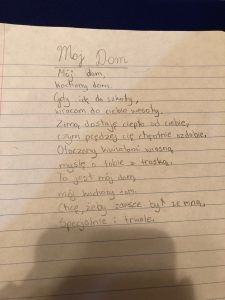 Mój Dom
Mój dom,
kochany dom.
Gdy idę do szkoły,
wracam do ciebie wesoły.
Zimą dostaję ciepło od ciebie,
czym prędzej cię chętnie ozdabie,
Otoczony kwiatami wiosną
myślę o tobie z troską,
To jest mój dom,
mój kochany dom.
Chcę, żeby zawsze był ze mną,
Specjalnie i trwale.